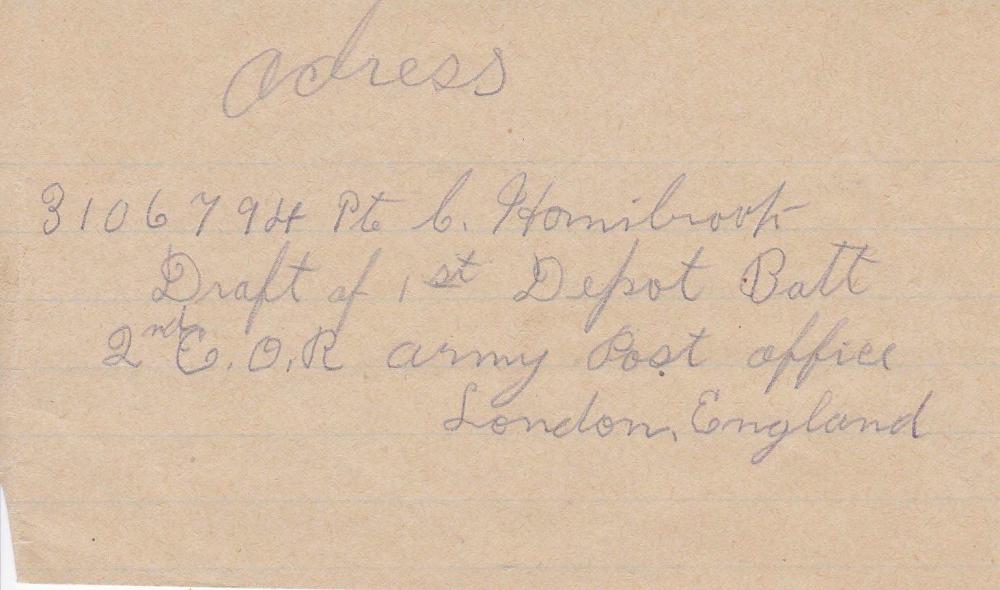 adress
3106794 Pte C. Hornibrook
Draft of 1st Depot Batt
2nd E.O.R army Post office
London, England